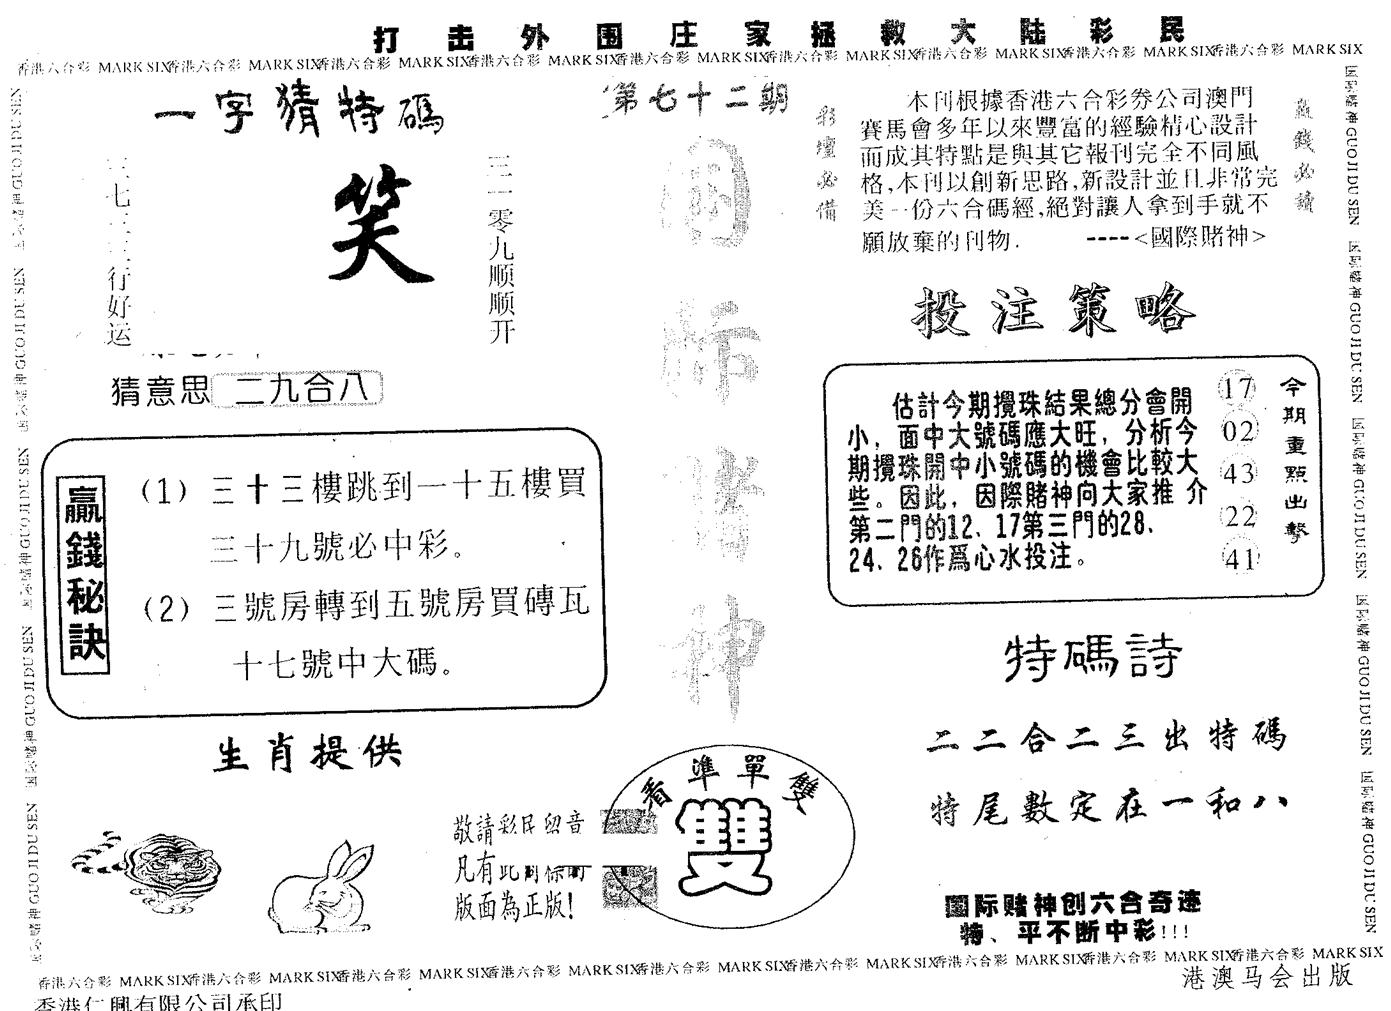 打击外围庄家拯救大陆彩民
香港六合彩 MARK SIX香港六合彩 MARK SIX香港六合彩 MARK SIX香港六合彩 MARK SIX香港六合彩 MARK SIX香港六合彩 MARK SIX香港六合彩 MARK SIX香港六合彩 MARK SIX香港六合彩 MARK SIX
一字猜特碼
笑
三一零九顺顺开
行好运
猜意思 二九合八
贏錢秘訣
(1) 三十三樓跳到一十五樓買
三十九號必中彩。
(2) 三號房轉到五號房買磚瓦
十七號中大碼。
生肖提供
第七十二期
国际赌神
敬請彩民留音
凡有此
版面為正版!
看準單雙
雙
彩壇必備
本刊根據香港六合彩券公司澳門
賽馬會多年以來豐富的經驗精心設計
而成其特點是與其它報刊完全不同風
格,本刊以創新思路,新設計並且非常完
美一份六合碼經,絕對讓人拿到手就不
願放棄的刊物.　----<國際賭神>
贏錢必讀
投注策略
估計今期攪珠結果總分會開
小，面中大號碼應大旺，分析今
期攪珠開中小號碼的機會比較大
些。因此，因際賭神向大家推介
第二門的12、17第三門的28、
24、26作爲心水投注。
17
02
43
22
41
今期重點出擊
特碼詩
二二合二三出特碼
特尾數定在一和八
国际赌神创六合奇迹
特、平不断中彩!!!
香港六合彩 MARK SIX香港六合彩 MARK SIX香港六合彩 MARK SIX香港六合彩 MARK SIX香港六合彩 MARK SIX香港六合彩 MARK SIX香港六合彩 MARK SIX香港六合彩 MARK SIX香港六合彩 MARK SIX
港澳马会出版
香港仁興有限公司承印